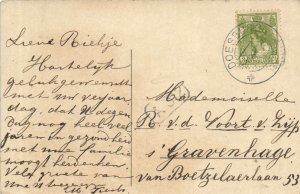 Lieve Riehje
Hartelijk
geluk gewenscht
met uw verjaar
dag, dat U dezen
Dag nog veel
jaren in gezondheid
met uwe familie
moogt herdenken
Vele groete van
DOES
Mademoiselle
R. v. d. Voort v. Zijp
's Gravenhage
van Boetzelaerlaan 53